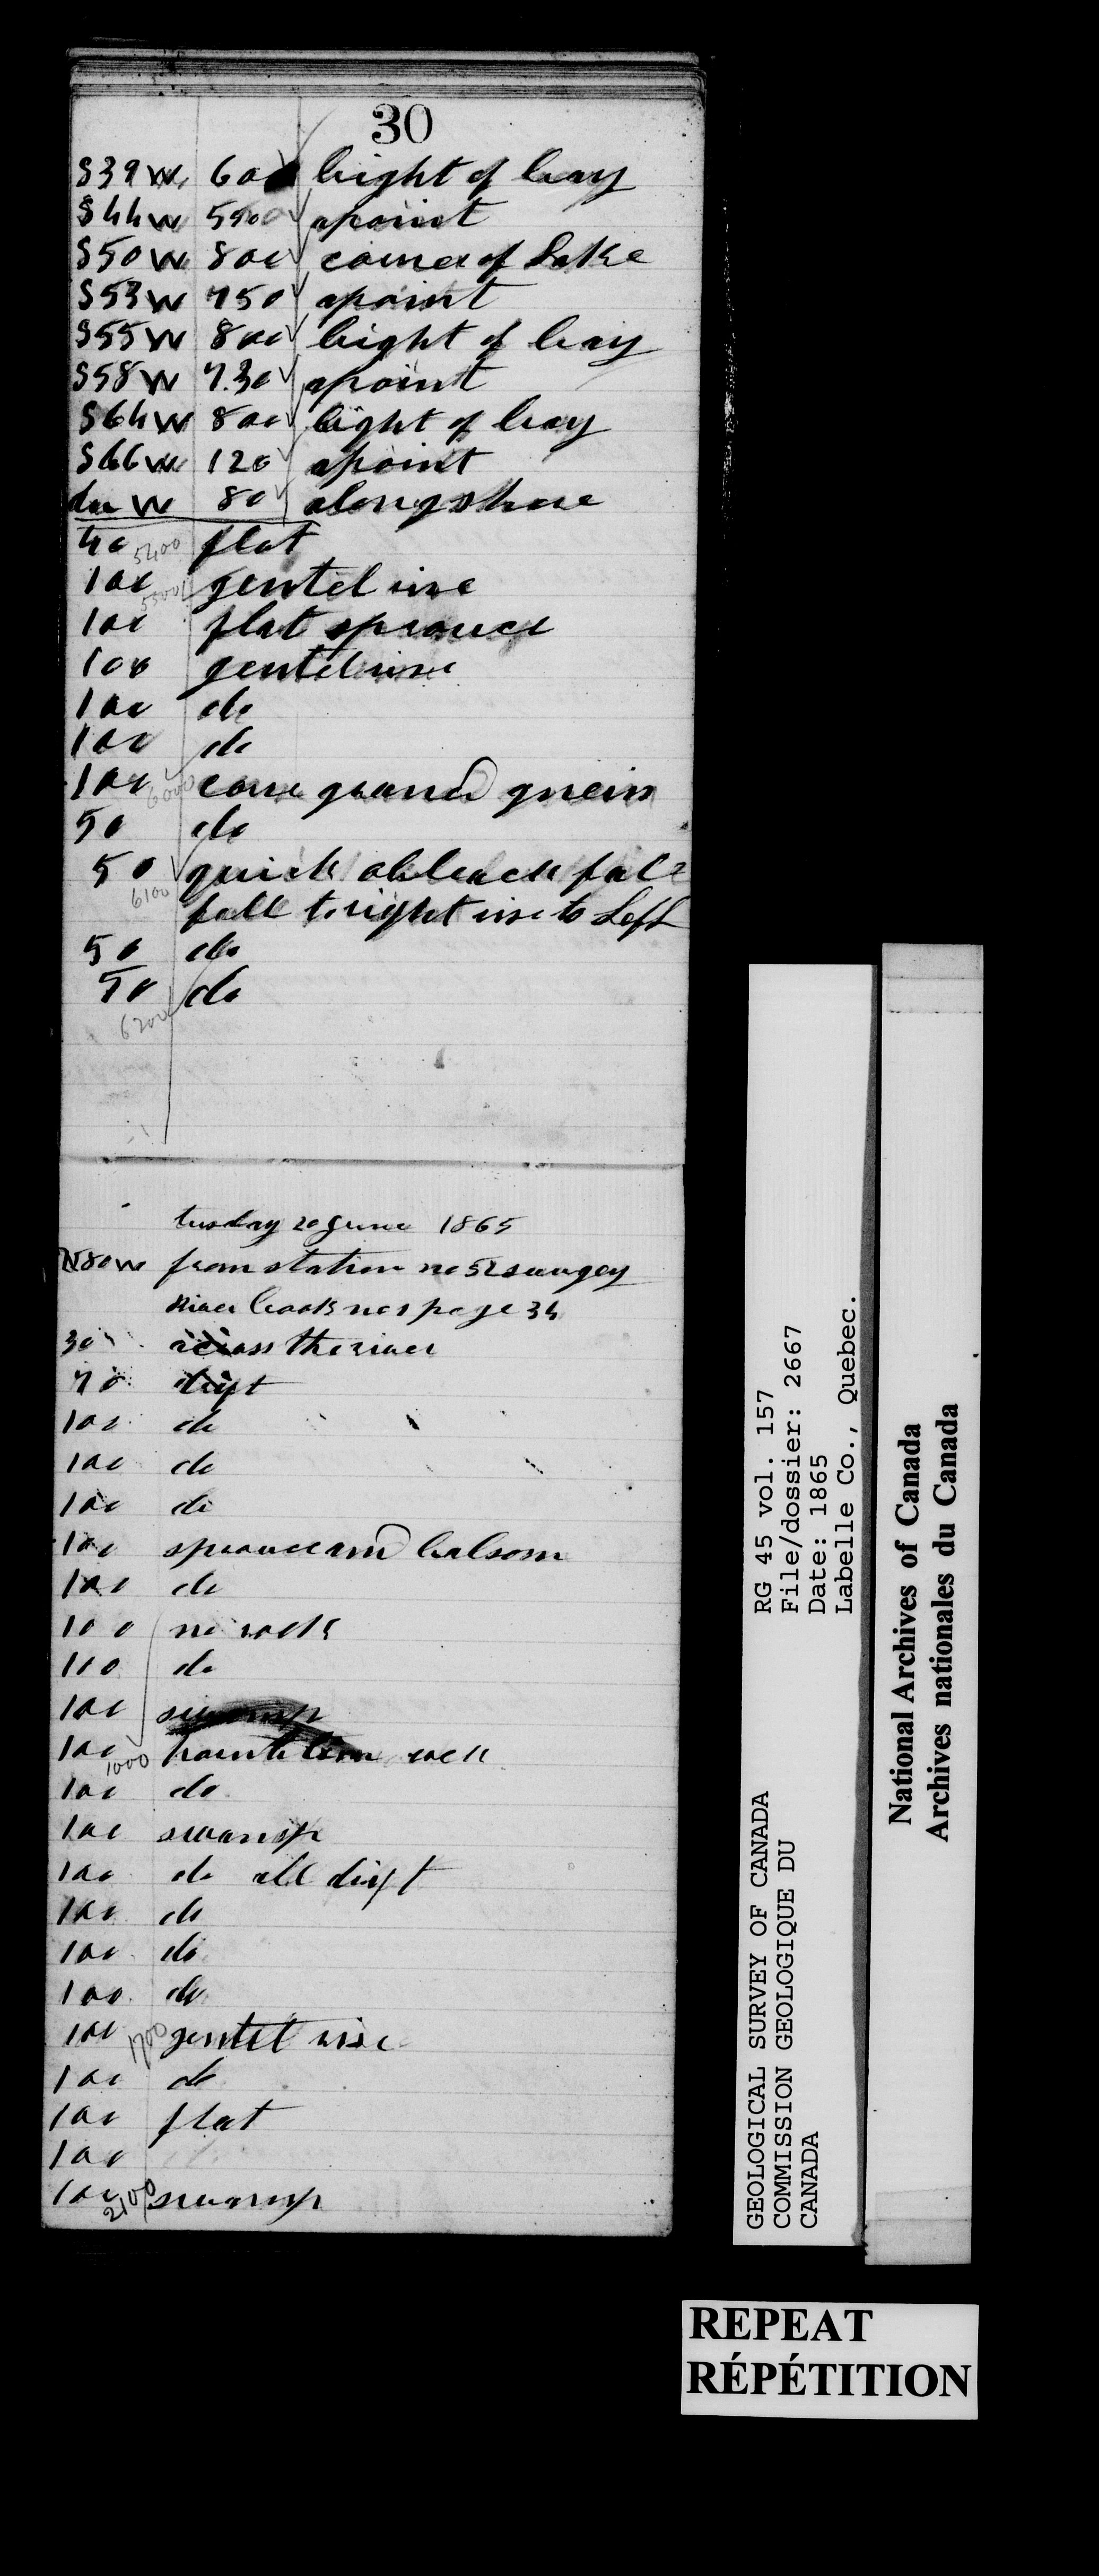 30
S39W 600 bight of bay
S44W 550 apoint
S50W 800 corner of Lake
S53W 750 apoint
S55W 800 bight of bay
S58W 730 apoint
S64W 800 bight of bay
S66W 120 apoint
due W 80 alongshore
40 flat
5400
100 gentel rise
5500
100 flat sprouce
100 gentel rise
100 do
100 do
100 gneiss
6000
50 do
50 quick
6100
fall to right rise to Left
50 do
50 do
6200
tusday 20 June 1865
N80W from station no 52
River book no 1 page 34
30 across the river
70 drift
100 do
100 do
100 do
100 sprouce and balsom
100 do
100 no rock
100 do
100 swamp
100 rock
1000
100 do
100 swamp
100 do all drift
100 do
100 do
100 do
100 gentel rise
1700
100 do
100 flat
100
100 swamp
2100
RG 45 vol. 157
File/dossier: 2667
Date: 1865
Labelle Co., Quebec.
GEOLOGICAL SURVEY OF CANADA
COMMISSION GEOLOGIQUE DU
CANADA
National Archives of Canada
Archives nationales du Canada
REPEAT
RÉPÉTITION